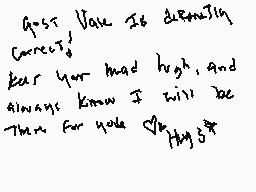 gost Vale Is defenetly
correct!
keep your head high, and
always know I will be
there for you ♡
Hugs*